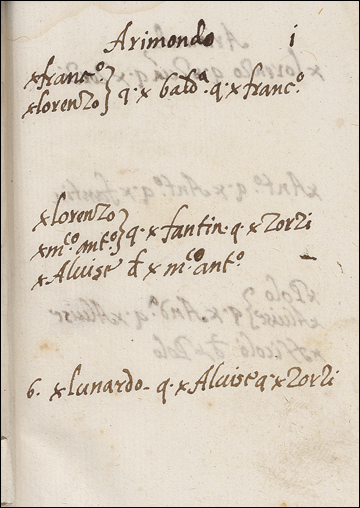 Arimondo i
x franc.º
x lorenzo } q. x bald.ª q. x franc.º
x lorenzo
x m.co ant.º } q. x fantin. q. x Zorzi
x Aluise đ x m.co ant.º
6. x lunardo - q. x Aluise q. x Zorzi